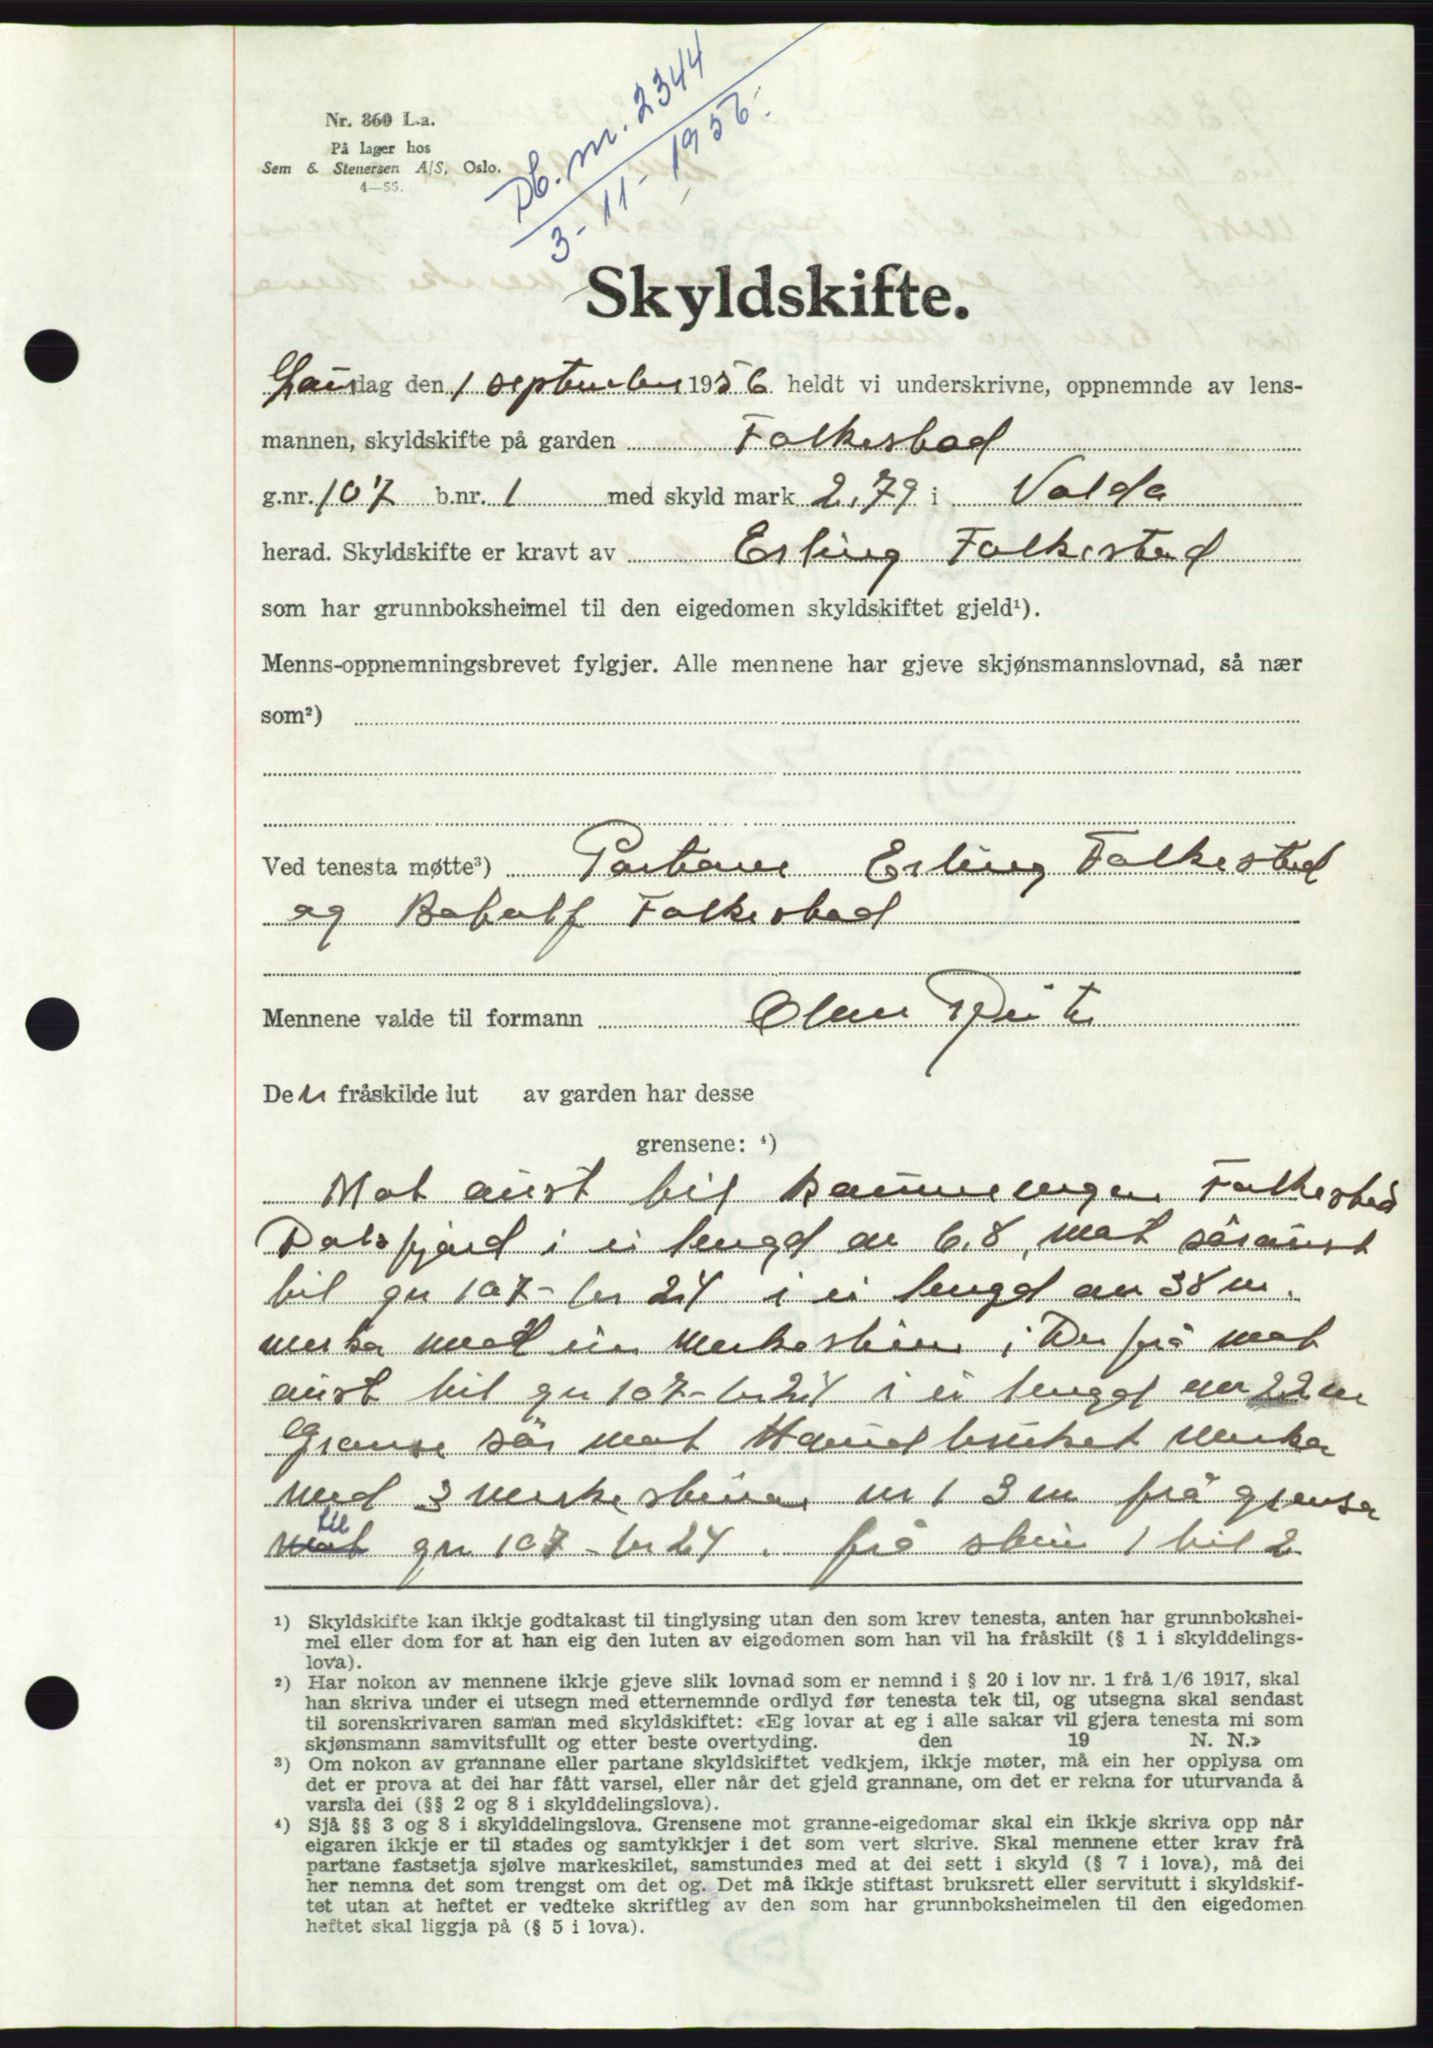 Nr. 860 L.a.
På lager hos
Sem & Stenersen A/S, Oslo.
4—55.
Db. nr. 2344
3-11-1956.
Skyldskifte.
Laurdag den 1 september 1956 heldt vi underskrivne, oppnemnde av lens-
mannen, skyldskifte på garden Folkestad
g.nr. 107 b.nr. 1 med skyld mark 2,79 i Volda
herad. Skyldskifte er kravt av Erling Folkestad
som har grunnboksheimel til den eigedomen skyldskiftet gjeld¹).
Menns-oppnemningsbrevet fylgjer. Alle mennene har gjeve skjønsmannslovnad, så nær
som²)
Ved tenesta møtte³) Partane Erling Folkestad
og Botolf Folkestad
Mennene valde til formann Olav
Den fråskilde lut av garden har desse
grensene: ⁴)
Mot aust til Folkestad
Dalsfjord i ei lengd av 6,8, mot söraust
til gn 107 - br 24 i ei lengd av 38 m.
merka med ein merkestein i Der frå mot
aust til gn 107 - br 24 i ei lengd av 22 m
Grense sör mot Hovudbruket merka
med 3 merkesteinar nr 1 3 m frå grensa
mot til gn 107 - br 24. frå stein 1 til 2
¹) Skyldskifte kan ikkje godtakast til tinglysing utan den som krev tenesta, anten har grunnbokshei-
mel eller dom for at han eig den luten av eigedomen som han vil ha fråskilt (§ 1 i skylddelings-
lova).
²) Har nokon av mennene ikkje gjeve slik lovnad som er nemnd i § 20 i lov nr. 1 frå 1/6 1917, skal
han skriva under ei utsegn med etternemnde ordlyd før tenesta tek til, og utsegna skal sendast
til sorenskrivaren saman med skyldskiftet: «Eg lovar at eg i alle sakar vil gjera tenesta mi som
skjønsmann samvitsfullt og etter beste overtyding. den 19 N. N.»
³) Om nokon av grannane eller partane skyldskiftet vedkjem, ikkje møter, må ein her opplysa om
det er prova at dei har fått varsel, eller når det gjeld grannane, om det er rekna for uturvanda å
varsla dei (§§ 2 og 8 i skylddelingslova).
⁴) Sjå §§ 3 og 8 i skylddelingslova. Grensene mot granne-eigedomar skal ein ikkje skriva opp når
eigaren ikkje er til stades og samtykkjer i det som vert skrive. Skal mennene etter krav frå
partane fastsetja sjølve markeskilet, samstundes med at dei sett i skyld (§ 7 i lova), må dei
her nemna det som trengst om det og. Det må ikkje stiftast bruksrett eller servitutt i skyldskif-
tet utan at heftet er vedteke skriftleg av den som har grunnboksheimelen til den eigedomen
heftet skal liggja på (§ 5 i lova).